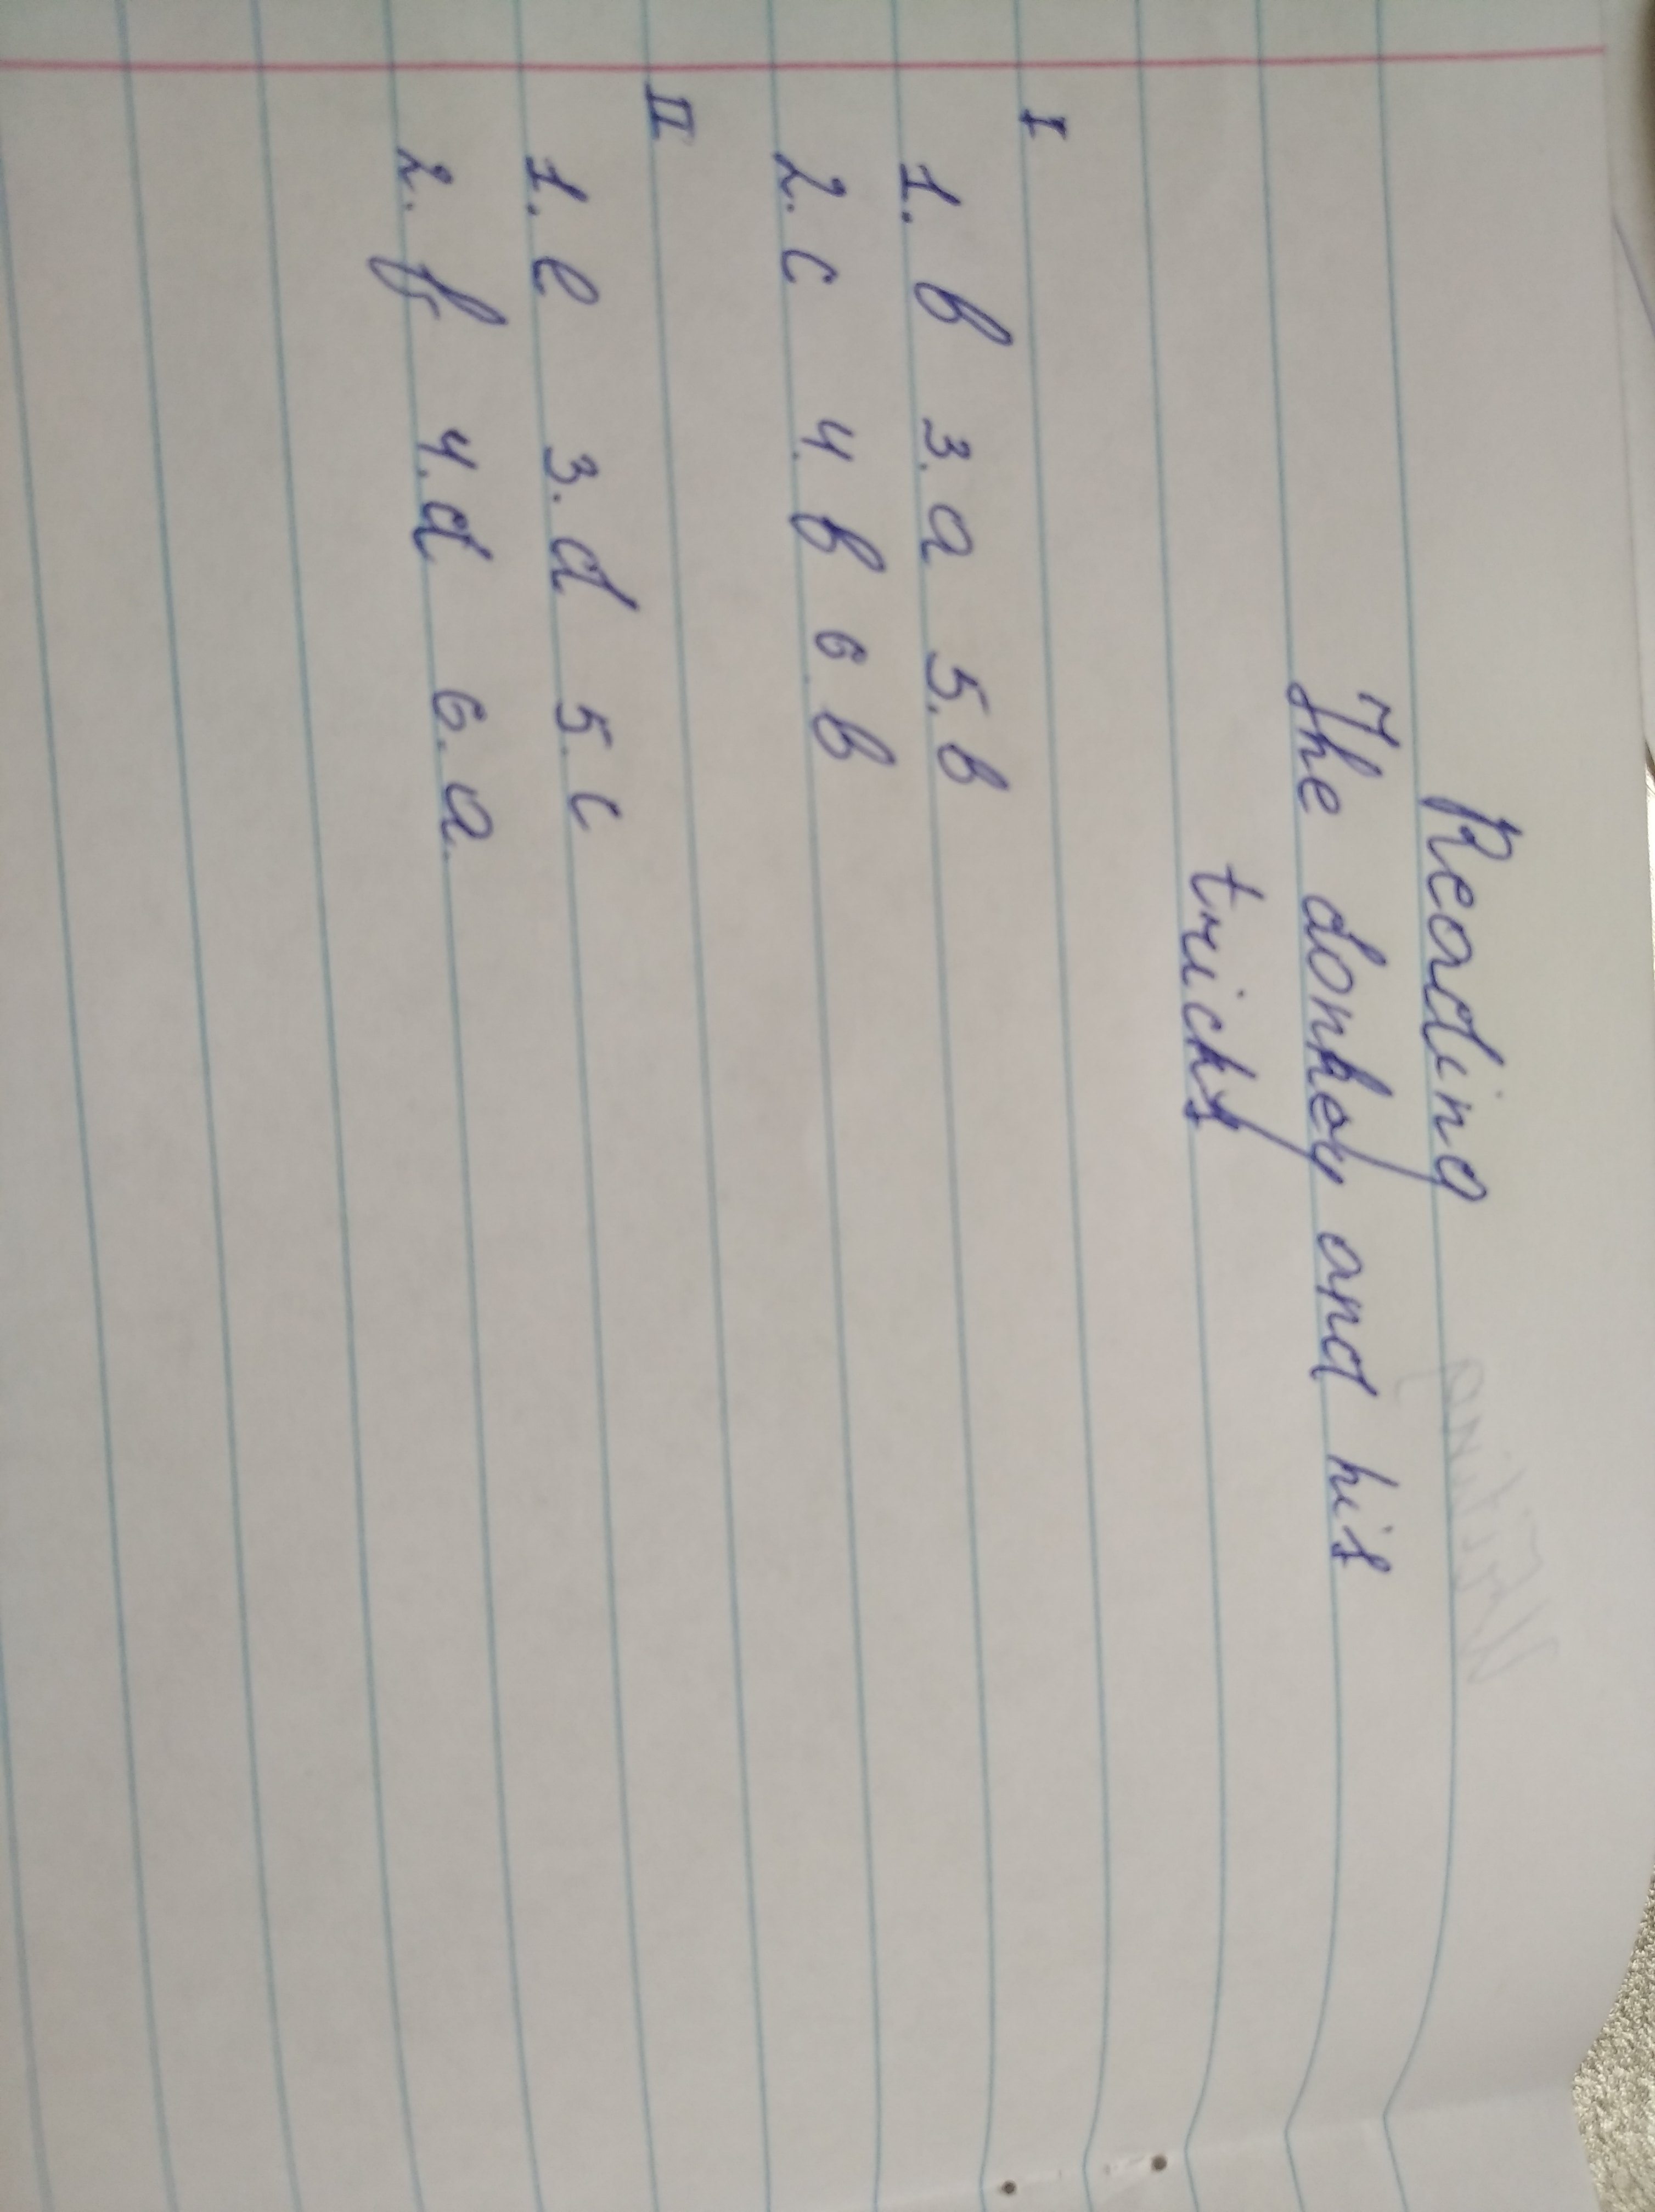 Reading
The donkey and his
tricks
I
1. b 3. a 5. b
2. c 4. b 6. b
II
1. e 3. d 5. c
2. f 4. d 6. a.